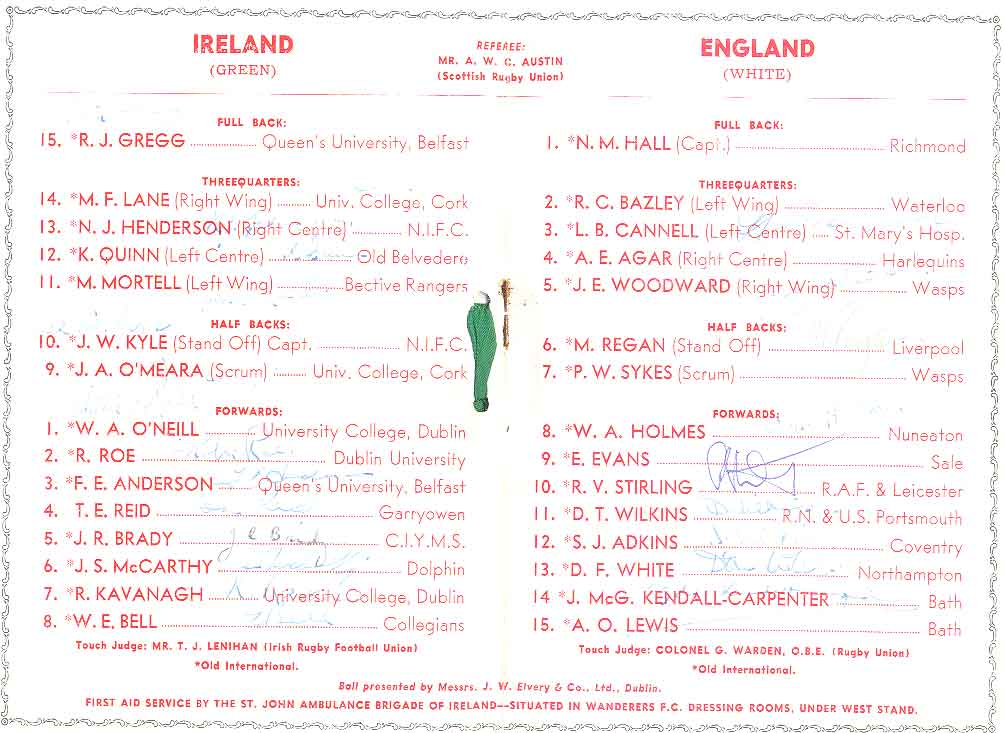 IRELAND
(GREEN)
FULL BACK:
15. *R. J. GREGG ........ Queen's University, Belfast
THREEQUARTERS:
14. *M. F. LANE (Right Wing) ........ Univ. College, Cork
13. *N. J. HENDERSON (Right Centre) ........ N.I.F.C.
12. *K. QUINN (Left Centre) ........ Old Belvedere
11. *M. MORTELL (Left Wing) ........ Bective Rangers
HALF BACKS:
10. *J. W. KYLE (Stand Off) Capt. ........ N.I.F.C.
9. *J. A. O'MEARA (Scrum) ........ Univ. College, Cork
FORWARDS:
1. *W. A. O'NEILL ........ University College, Dublin
2. *R. ROE ........ Dublin University
3. *F. E. ANDERSON ........ Queen's University, Belfast
4. T. E. REID ........ Garryowen
5. *J. R. BRADY ........ C.I.Y.M.S.
6. *J. S. McCARTHY ........ Dolphin
7. *R. KAVANAGH ........ University College, Dublin
8. *W. E. BELL ........ Collegians
Touch Judge: MR. T. J. LENIHAN (Irish Rugby Football Union)
*Old International.
REFEREE:
MR. A. W. C. AUSTIN
(Scottish Rugby Union)
ENGLAND
(WHITE)
FULL BACK:
1. *N. M. HALL (Capt.) ........ Richmond
THREEQUARTERS:
2. *R. C. BAZLEY (Left Wing) ........ Waterloo
3. *L. B. CANNELL (Left Centre) ........ St. Mary's Hosp.
4. *A. E. AGAR (Right Centre) ........ Harlequins
5. *J. E. WOODWARD (Right Wing) ........ Wasps
HALF BACKS:
6. *M. REGAN (Stand Off) ........ Liverpool
7. *P. W. SYKES (Scrum) ........ Wasps
FORWARDS:
8. *W. A. HOLMES ........ Nuneaton
9. *E. EVANS ........ Sale
10. *R. V. STIRLING ........ R.A.F. & Leicester
11. *D. T. WILKINS ........ R.N. & U.S. Portsmouth
12. *S. J. ADKINS ........ Coventry
13. *D. F. WHITE ........ Northampton
14 *J. McG. KENDALL-CARPENTER ........ Bath
15. *A. O. LEWIS ........ Bath
Touch Judge: COLONEL G. WARDEN, O.B.E. (Rugby Union)
*Old International.
Ball presented by Messrs. J. W. Elvery & Co., Ltd., Dublin.
FIRST AID SERVICE BY THE ST. JOHN AMBULANCE BRIGADE OF IRELAND--SITUATED IN WANDERERS F.C. DRESSING ROOMS, UNDER WEST STAND.